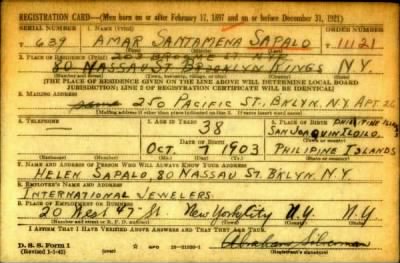 REGISTRATION CARD—(Men born on or after February 17, 1897 and on or before December 31, 1921)
SERIAL NUMBER 1. NAME (Print) ORDER NUMBER
T 639 AMAR SANTAMENA SAPALO T 11121
2. PLACE OF RESIDENCE (Print)
80 NASSAU ST BROOKLYN KINGS N.Y.
(Number and street) (Town, township, village, or city) (County) (State)
[THE PLACE OF RESIDENCE GIVEN ON THE LINE ABOVE WILL DETERMINE LOCAL BOARD
JURISDICTION; LINE 2 OF REGISTRATION CERTIFICATE WILL BE IDENTICAL]
3. MAILING ADDRESS
same 250 PACIFIC ST. BKLYN. N.Y. APT 26
4. TELEPHONE 5. AGE IN YEARS 6. PLACE OF BIRTH
38 SAN JOAQUIN ILOILO.
DATE OF BIRTH
OCT. 7 1903 PHILIPINE ISLANDS
7. NAME AND ADDRESS OF PERSON WHO WILL ALWAYS KNOW YOUR ADDRESS
HELEN SAPALO, 80 NASSAU ST. BKLYN. N.Y.
8. EMPLOYER'S NAME AND ADDRESS
INTERNATIONAL JEWELERS.
9. PLACE OF EMPLOYMENT OR BUSINESS
20 West 47 St. New York City N.Y. N.Y
I AFFIRM THAT I HAVE VERIFIED ABOVE ANSWERS AND THAT THEY ARE TRUE.
D. S. S. Form 1
(Revised 1-1-42)